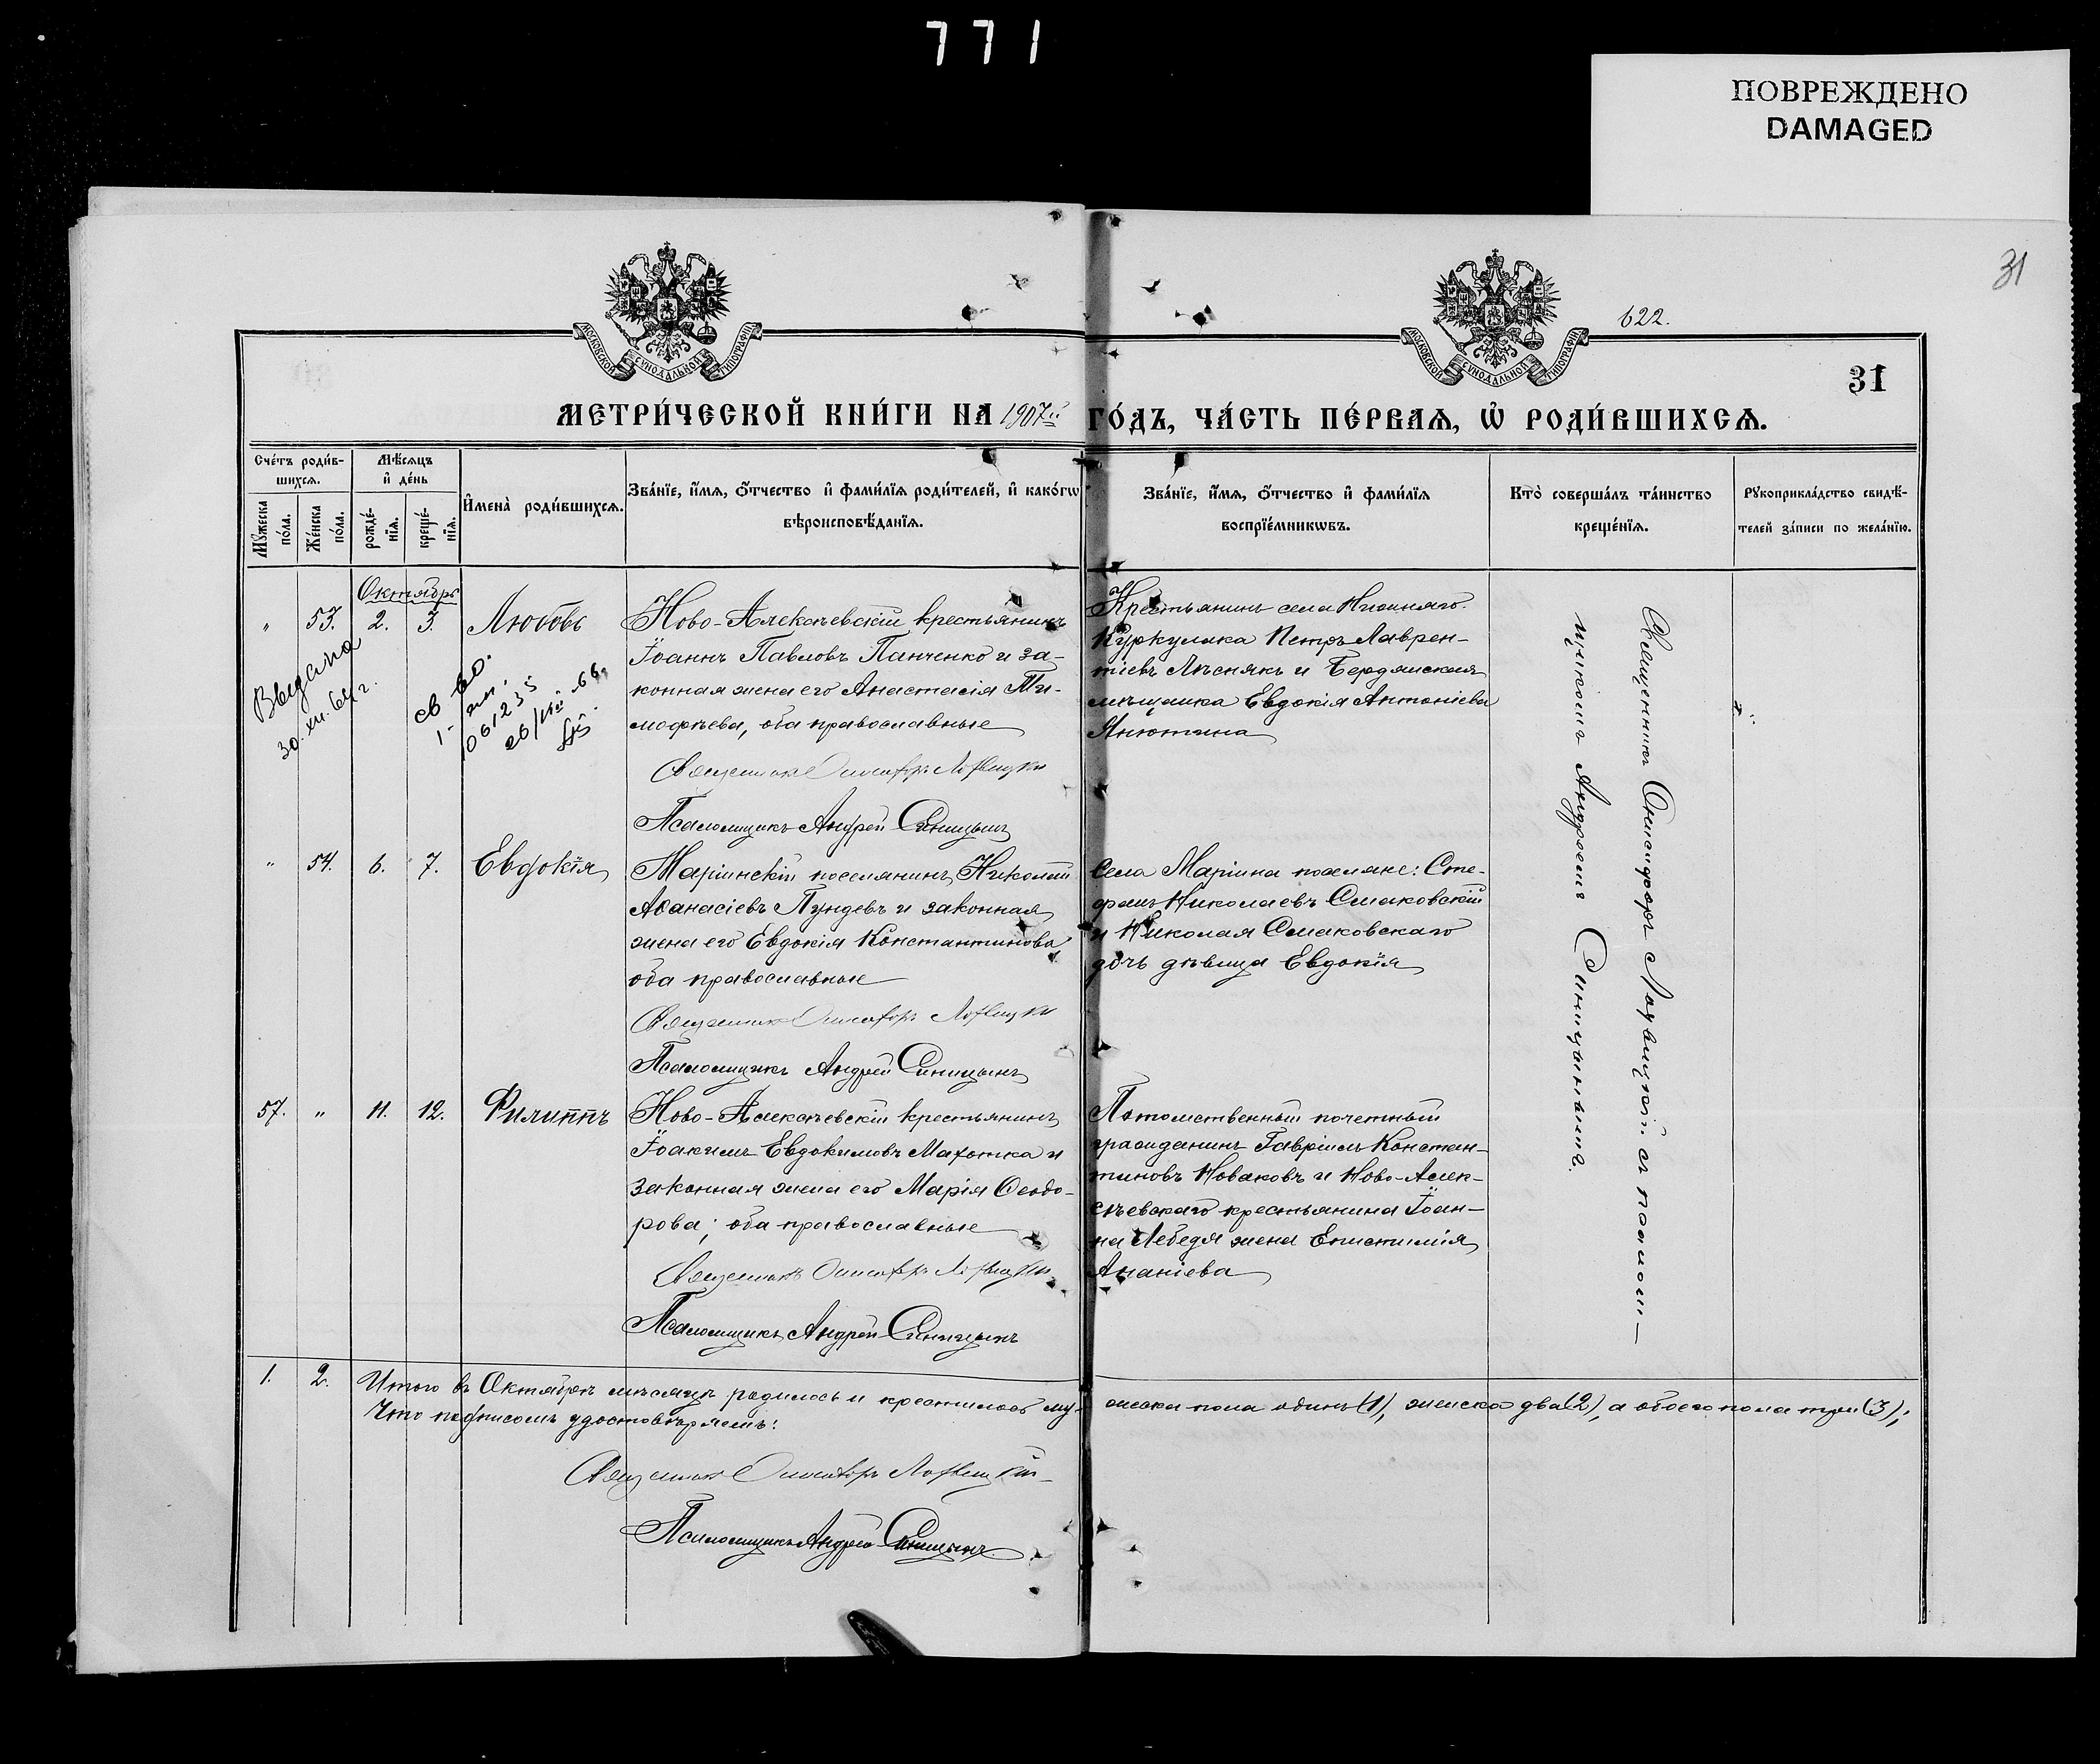 771
ПОВРЕЖДЕНО
DAMAGED
31
622.
МОСКОВСКОЙ СУНОДАЛЬНОЙ ТИПОГРАФІИ
МОСКОВСКОЙ СУНОДАЛЬНОЙ ТИПОГРАФІИ
31
МЕТРИ́ЧЕСКОЙ КНИ́ГИ НА 1907й ГО́ДЪ, ЧА́СТЬ ПЕ́РВАѦ, Ѡ҆ РОДИ́ВШИХСѦ.
Сче́тъ роди́в-
шихсѧ.
Мꙋ́жеска по́ла.
Же́нска по́ла.
Мѣ́сѧцъ
и҆ де́нь
рожде́-
нїѧ.
креще́-
нїѧ.
И҆мена̀ роди́вшихсѧ.
Зва́нїе, и҆́мѧ, ѻ҆́тчество и҆ фами́лїѧ роди́телей, и҆ како́гѡ
вѣроисповѣ́данїѧ.
Зва́нїе, и҆́мѧ, ѻ҆́тчество и҆ фами́лїѧ
воспрїе́мникѡвъ.
Кто̀ соверша́лъ та́инство
креще́нїѧ.
Рꙋкоприкла́дство свидѣ́-
телей за́писи по жела́нїю.
Октябрь
" 53. 2. 3. Любовь
Выдана
30.XII.64 г.
св во.
061235
Ново-Алексѣевскій крестьянинъ
Іоаннъ Павловъ Панченко и за-
конная жена его Анастасія Ти-
мофѣева, оба православные
Священникъ Онисифоръ Лозвицкій
Псаломщикъ Андрей Синицынъ
Крестьянинъ села Нижняго
Куркулака Петръ Лаврен-
тіевъ Лѣснякъ и Бердянская
мѣщанка Евдокія Антоніева
Анютина
Священникъ Онисифоръ Лозвицкій съ псалом-
щикомъ Андреемъ Синицынымъ.
" 54. 6. 7. Евдокія
Маріинскій поселянинъ Николай
Аѳанасіевъ Пундевъ и законная
жена его Евдокія Константинова
оба православные
Священникъ Онисифоръ Лозвицкій
Псаломщикъ Андрей Синицынъ
Села Маріина поселяне: Сте-
фанъ Николаевъ Смаковскій
и Николая Смаковскаго
дочь дѣвица Евдокія
57. " 11. 12. Филиппъ
Ново-Алексѣевскій крестьянинъ
Іоакимъ Евдокимовъ Махотка и
законная жена его Марія Ѳеодо-
рова; оба православные
Священникъ Онисифоръ Лозвицкій
Псаломщикъ Андрей Синицынъ
Потомственный почетный
гражданинъ Гавріилъ Констан-
тиновъ Новаковъ и Ново-Алек-
сѣевскаго крестьянина Іоан-
на Лебедя жена Епистимія
Ананіева
1. 2. Итого въ Октябрѣ мѣсяцѣ родилось и крестилось му-жска пола одинъ (1), женска два (2), а обоего пола три (3);
Что подписомъ удостовѣряемъ:
Священникъ Онисифоръ Лозвицкій
Псаломщикъ Андрей Синицынъ